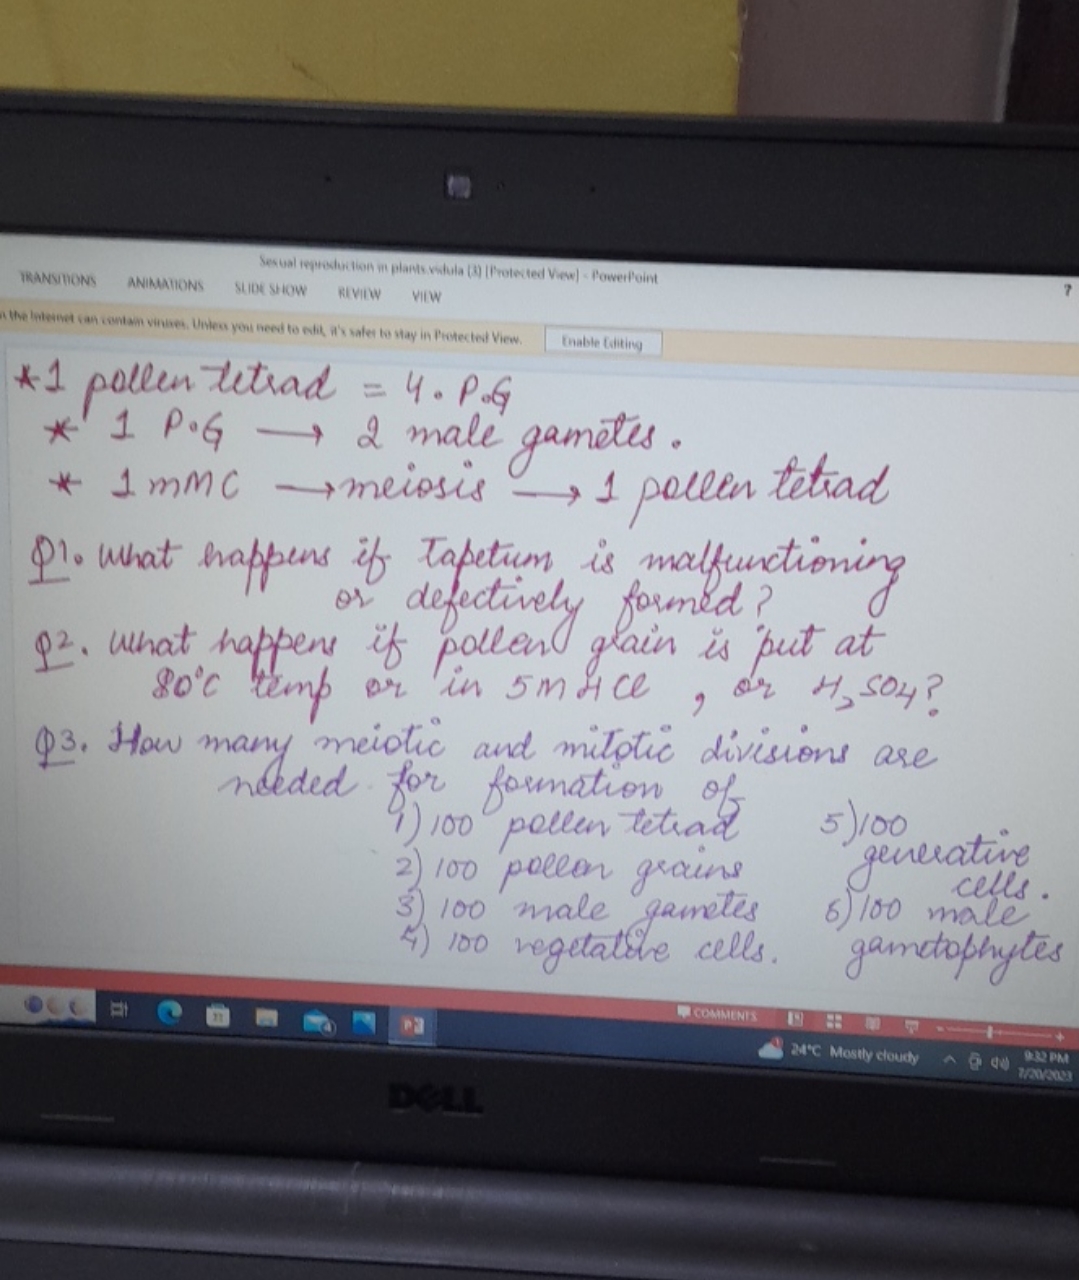 Sexual reproduction in plants.vidula (3) [Protected View] - PowerPoint
?
TRANSITIONS ANIMATIONS SLIDE SHOW REVIEW VIEW
the Internet can contain viruses. Unless you need to edit, it's safer to stay in Protected View. Enable Editing
*1 pollen tetrad = 4. P.G
* 1 P.G → 2 male gametes.
* 1 mMC → meiosis → 1 pollen tetrad
Q1. What happens if Tapetum is malfunctioning
or defectively formed?
Q2. What happens if pollen grain is put at
80°C temp or in 5M HCl , or H₂SO4?
Q3. How many meiotic and mitotic divisions are
needed for formation of
1) 100 pollen tetrad
2) 100 pollen grains
3) 100 male gametes
4) 100 vegetative cells.
5) 100
generative
cells.
6) 100 male
gametophytes
COMMENTS
24°C Mostly cloudy
9:32 PM
7/20/2023
DELL